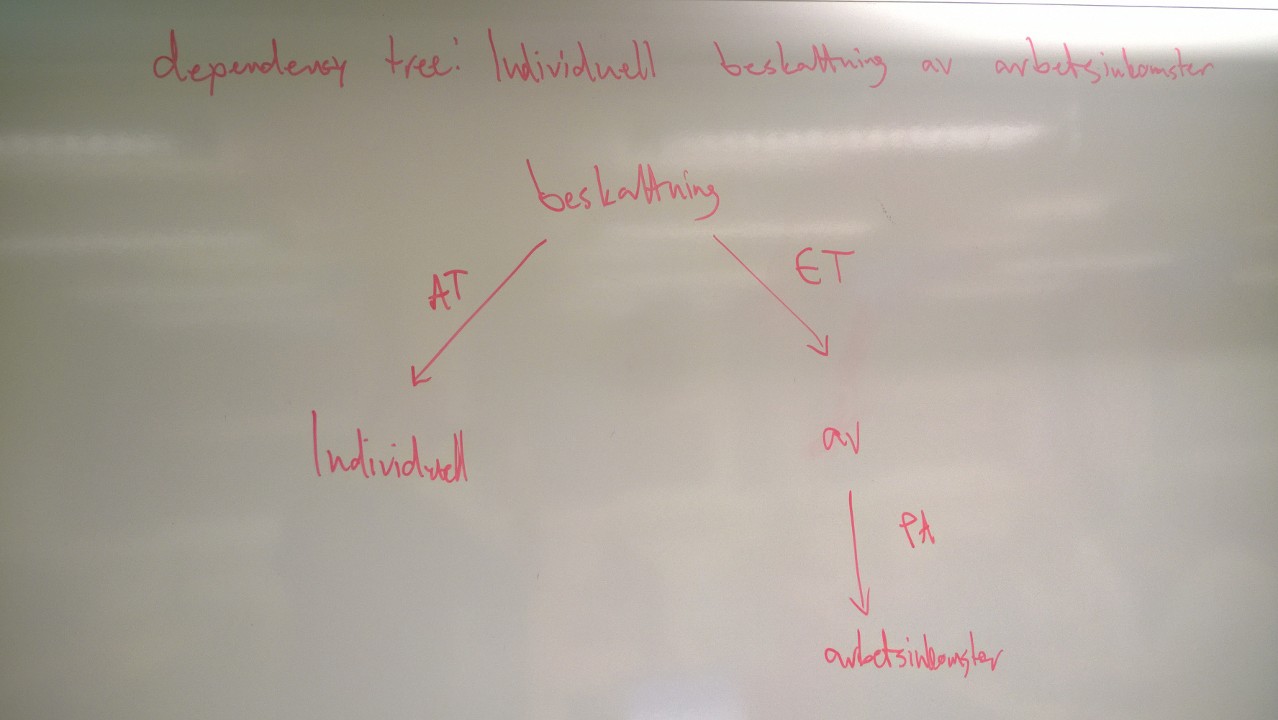 dependensy tree: Individuell beskattning av arbetsinkomster
beskattning
AT
ET
Individuell
av
PA
arbetsinkomster